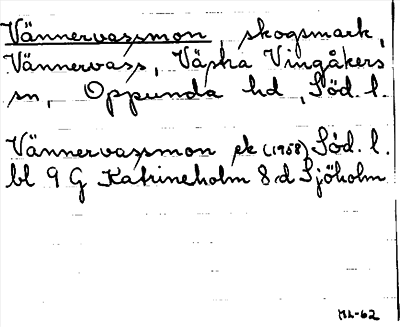 Vännervassmon, skogsmark,
Vännervass, Västra Vingåkers
sn, Oppunda hd, Söd. l.
Vännervassmon ek (1958) Söd. l.
bl 9 G Katrineholm 8 d Sjöholm
ML-62